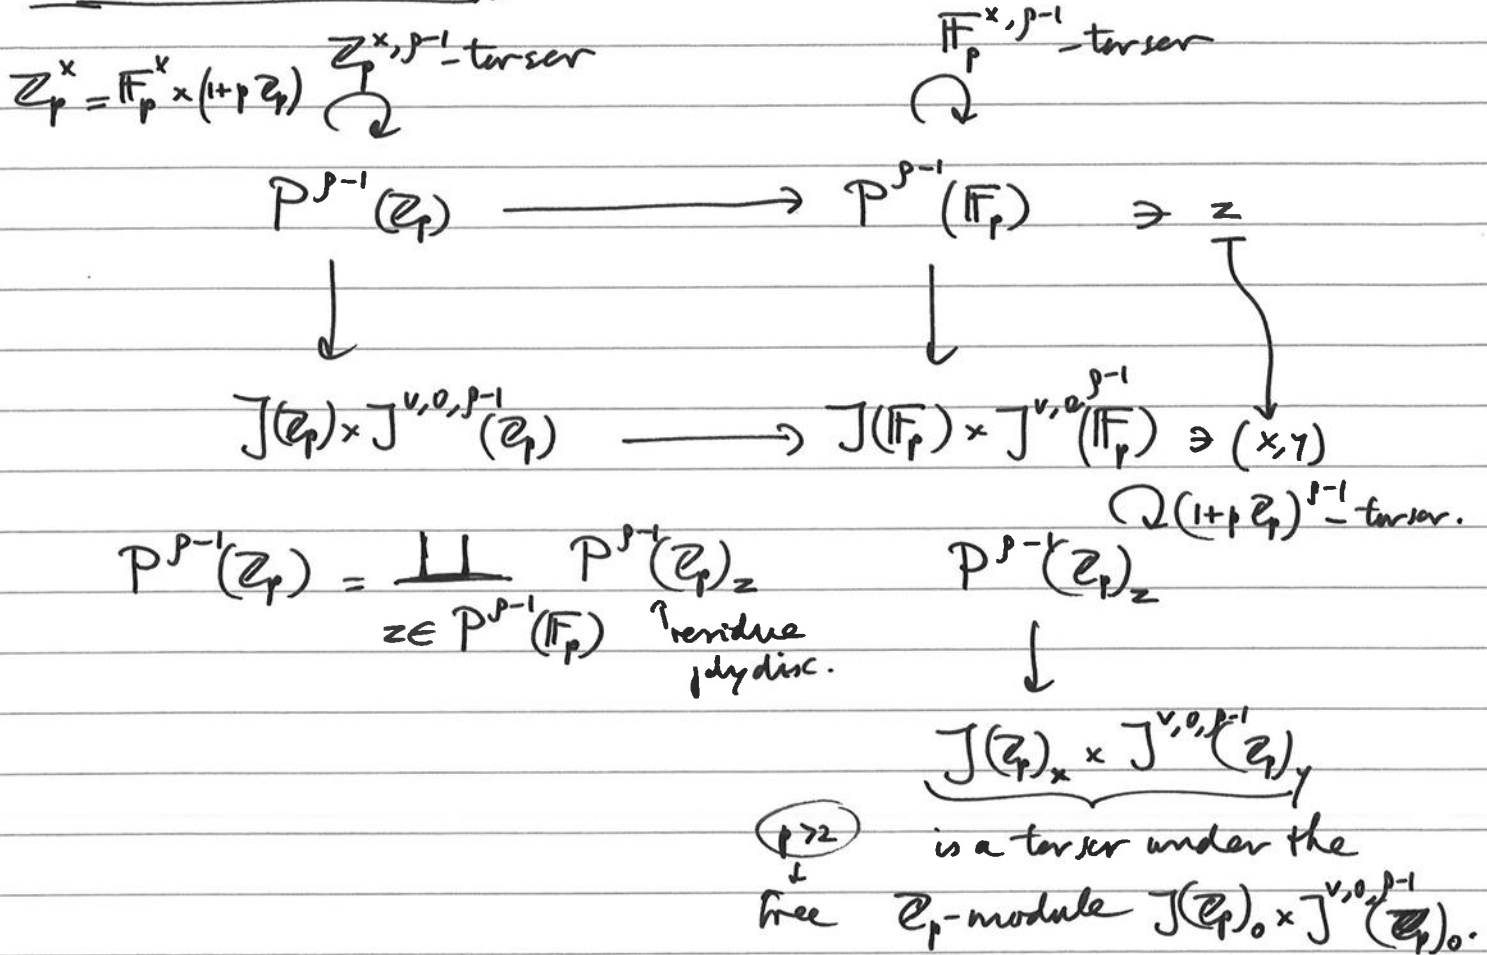 ℤ_p^× = 𝔽_p^× × (1+pℤ_p) ℤ_p^{×,ρ-1}-torsor 𝔽_p^{×,ρ-1}-torsor
P^{ρ-1}(ℤ_p) ⟶ P^{ρ-1}(𝔽_p) ∋ z
J(ℤ_p) × J^{∨,0,ρ-1}(ℤ_p) ⟶ J(𝔽_p) × J^{∨,0,ρ-1}(𝔽_p) ∋ (x,y)
P^{ρ-1}(ℤ_p) = ∐_{z∈P^{ρ-1}(𝔽_p)} P^{ρ-1}(ℤ_p)_z
↑residue
polydisc.
P^{ρ-1}(ℤ_p)_z ↻ (1+pℤ_p)^{ρ-1}-torsor.
↓
J(ℤ_p)_x × J^{∨,0,ρ-1}(ℤ_p)_y
p>2 is a torsor under the
↓
free ℤ_p-module J(ℤ_p)_0 × J^{∨,0,ρ-1}(ℤ_p)_0.